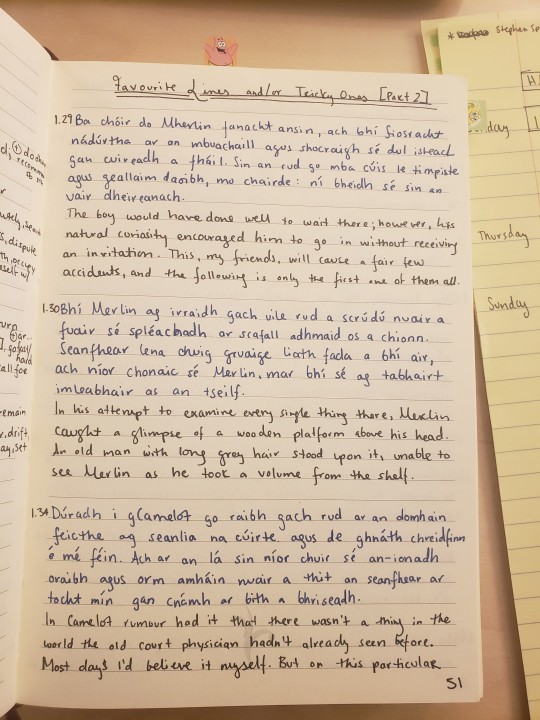 Favourite Lines and/or Tricky Ones [Part 2]
1.29 Ba chóir do Mherlin fanacht ansin, ach bhí fiosracht
nádúrtha ar an mbuachaill agus shocraigh sé dul isteach
gan cuireadh a fháil. Sin an rud go mba cúis le timpiste
agus geallaim daoibh, mo chairde: ní bheidh sé sin an
uair dheireanach.
The boy would have done well to wait there; however, his
natural curiosity encouraged him to go in without receiving
an invitation. This, my friends, will cause a fair few
accidents, and the following is only the first one of them all.
1.30 Bhí Merlin ag irraidh gach uile rud a scrúdú nuair a
fuair sé spléachadh ar scafall adhmaid os a chionn.
Seanfhear lena chuig gruaige liath fada a bhí air,
ach níor chonaic sé Merlin, mar bhí sé ag tabhairt
imleabhair as an tseilf.
In his attempt to examine every single thing there, Merlin
caught a glimpse of a wooden platform above his head.
An old man with long grey hair stood upon it, unable to
see Merlin as he took a volume from the shelf.
1.34 Dúradh i gCamelot go raibh gach rud ar an domhain
feicthe ag seanlia na cúirte. agus de ghnáth chreidfinn
é mé féin. Ach ar an lá sin níor chuir sé an-ionadh
oraibh agus orm amháin nuair a thit an seanfhear ar
tocht mín gan cnámh ar bith a bhriseadh.
In Camelot rumour had it that there wasn't a thing in the
world the old court physician hadn't already seen before.
Most days I'd believe it myself. But on this particular
51
* Stephen
day
Thursday
Sunday